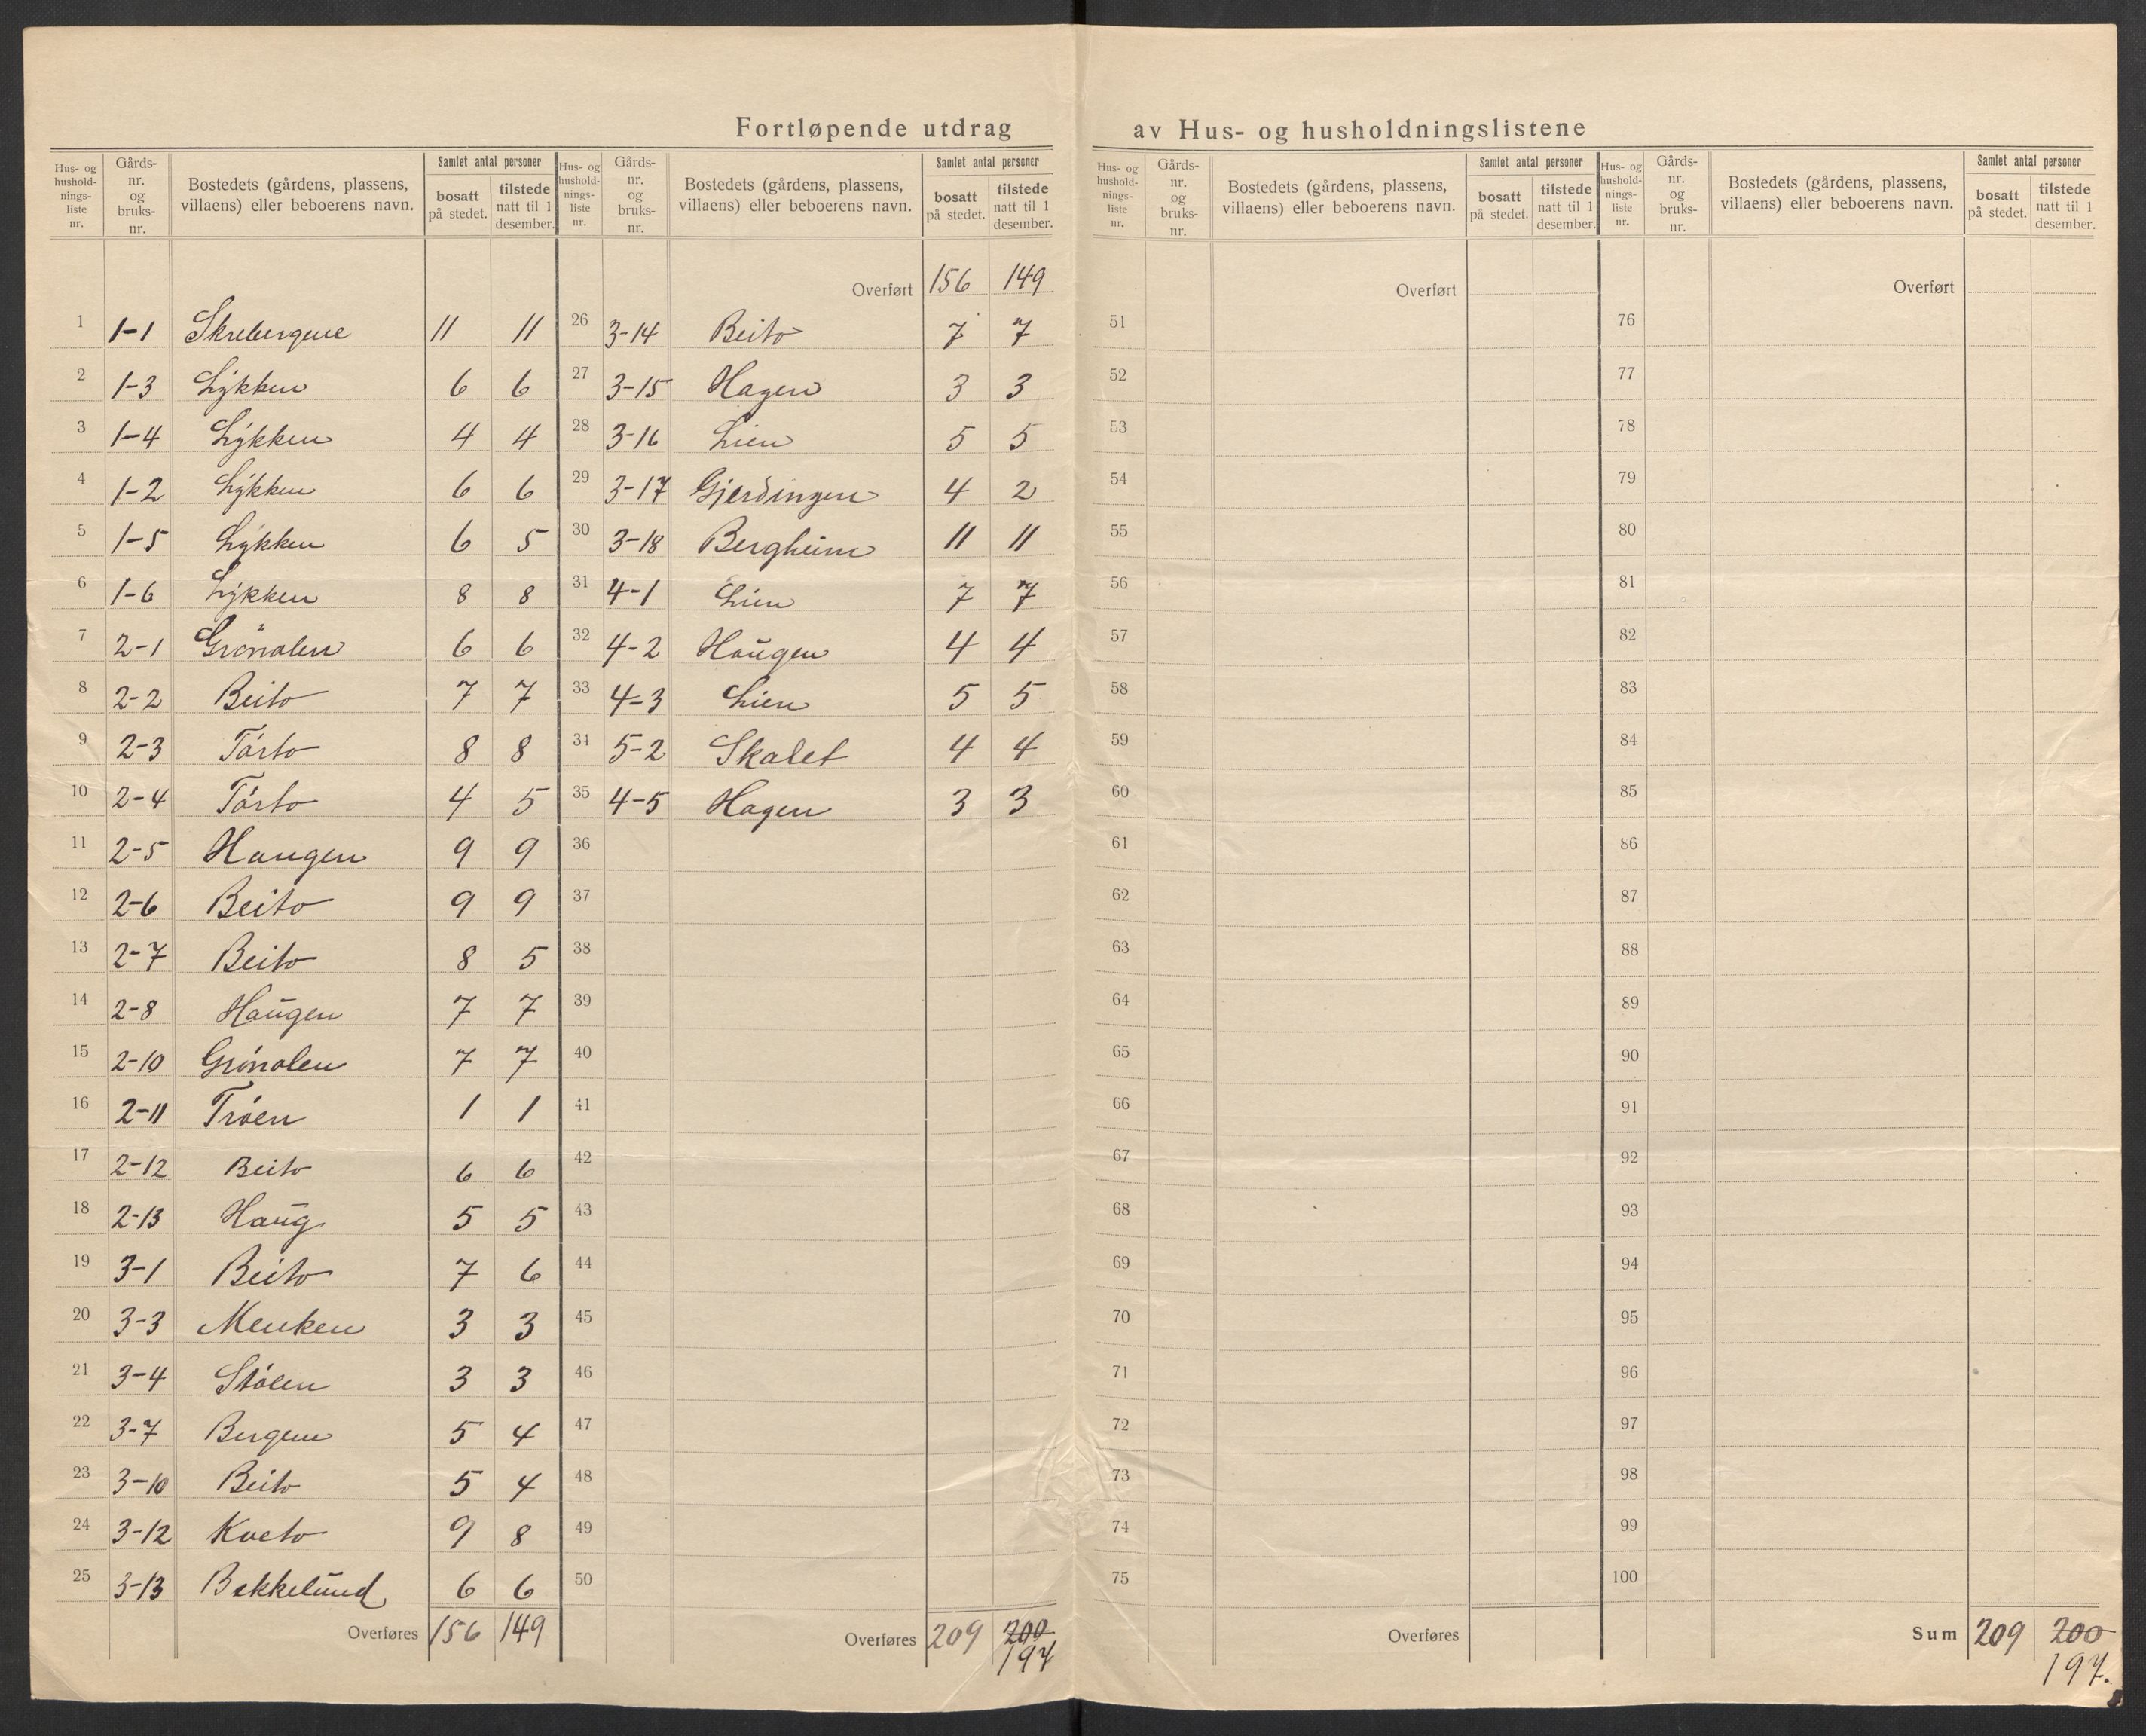 Fortløpende utdrag av Hus- og husholdningslistene
Hus- og hushold-nings-liste nr. Gårds-nr. og bruks-nr. Bostedets (gårdens, plassens, villaens) eller beboerens navn. Samlet antal personer bosatt på stedet. tilstede natt til 1 desember.
1 1-1 Skrebergene 11 11
2 1-3 Lykken 6 6
3 1-4 Lykken 4 4
4 1-2 Lykken 6 6
5 1-5 Lykken 6 5
6 1-6 Lykken 8 8
7 2-1 Grönolen 6 6
8 2-2 Beito 7 7
9 2-3 Tórto 8 8
10 2-4 Tórto 4 5
11 2-5 Haugen 9 9
12 2-6 Beito 9 9
13 2-7 Beito 8 5
14 2-8 Haugen 7 7
15 2-10 Grónolen 7 7
16 2-11 Tróen 1 1
17 2-12 Beito 6 6
18 2-13 Haug 5 5
19 3-1 Beito 7 6
20 3-3 Menken 3 3
21 3-4 Stólen 3 3
22 3-7 Bergene 5 4
23 3-10 Beito 5 4
24 3-12 Kveto 9 8
25 3-13 Bekkelund 6 6
Overføres 156 149
Hus- og hushold-nings-liste nr. Gårds-nr. og bruks-nr. Bostedets (gårdens, plassens, villaens) eller beboerens navn. Samlet antal personer bosatt på stedet. tilstede natt til 1 desember.
Overført 156 149
26 3-14 Beito 7 7
27 3-15 Hagen 3 3
28 3-16 Lien 5 5
29 3-17 Gjerdingen 4 2
30 3-18 Bergheim 11 11
31 4-1 Lien 7 7
32 4-2 Haugen 4 4
33 4-3 Lien 5 5
34 5-2 Skalet 4 4
35 4-5 Hagen 3 3
36
37
38
39
40
41
42
43
44
45
46
47
48
49
50
Overføres 209 200
197
Hus- og hushold-nings-liste nr. Gårds-nr. og bruks-nr. Bostedets (gårdens, plassens, villaens) eller beboerens navn. Samlet antal personer bosatt på stedet. tilstede natt til 1 desember.
Overført
51
52
53
54
55
56
57
58
59
60
61
62
63
64
65
66
67
68
69
70
71
72
73
74
75
Overføres
Hus- og hushold-nings-liste nr. Gårds-nr. og bruks-nr. Bostedets (gårdens, plassens, villaens) eller beboerens navn. Samlet antal personer bosatt på stedet. tilstede natt til 1 desember.
Overført
76
77
78
79
80
81
82
83
84
85
86
87
88
89
90
91
92
93
94
95
96
97
98
99
100
Sum 209 200
197.